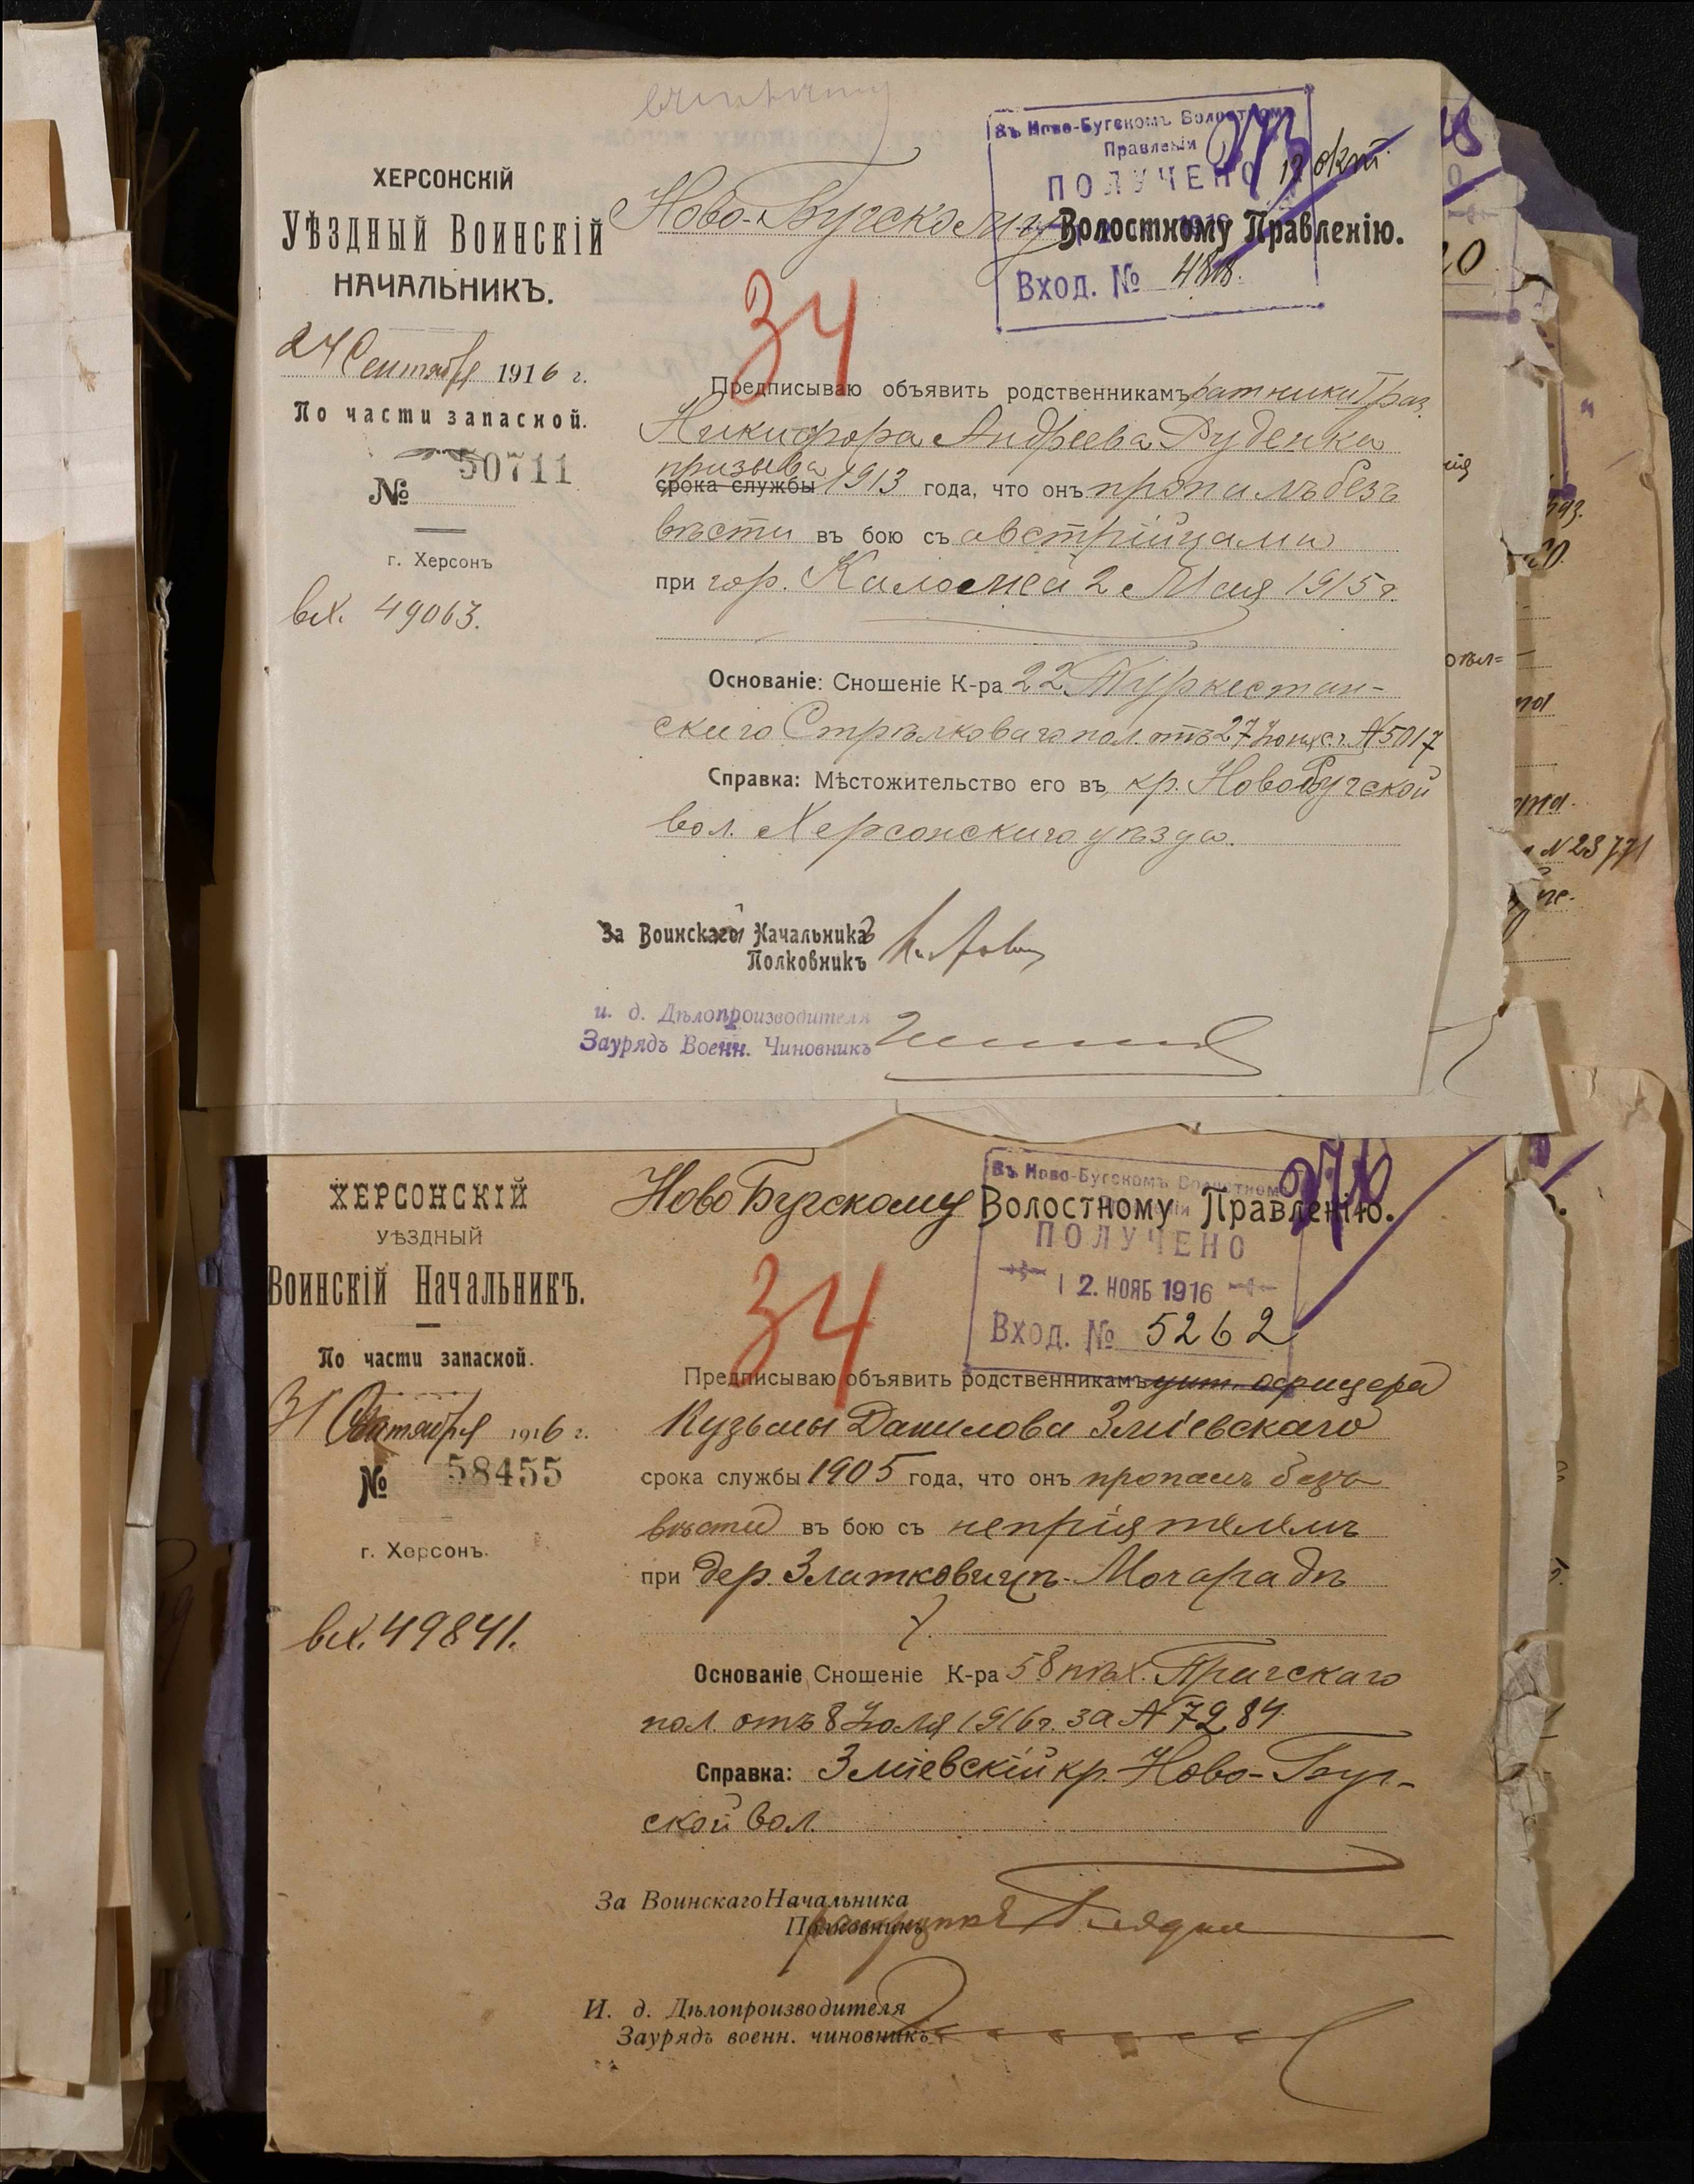 ХЕРСОНСКІЙ
УѢЗДНЫЙ ВОИНСКІЙ
НАЧАЛЬНИКЪ.
24 Сентября 1916 г.
По части запасной.
№ 50711
г. Херсонъ
вх. 49063.
Въ Ново-Бугскомъ Волостном
Правленіи
ПОЛУЧЕНО
12 окт.
Вход. №
273
Ново-Бугскому Волостному Правленію.
34
Предписываю объявить родственникамъ ратника I раз.
Никифора Андреева Руденка
призыва
срока службы 1913 года, что онъ пропалъ безъ
вѣсти въ бою съ австрійцами
при гор. Каломей 2 Мая 1915 г.
Основаніе: Сношеніе К-ра 22 Туркестан-
скаго Стрѣлковаго пол. отъ 27 Іюня с.г. № 5017
Справка: Мѣстожительство его въ кр. Новобугской
вол. Херсонскаго уѣзда.
За Воинскаго Начальника
Полковникъ
и. д. Дѣлопроизводителя
Заурядъ Военн. Чиновникъ
№ 23771
ХЕРСОНСКІЙ
УѢЗДНЫЙ
ВОИНСКІЙ НАЧАЛЬНИКЪ.
По части запасной.
31 Октября 1916 г.
№ 58455
г. Херсонъ.
вх. 49841.
Въ Ново-Бугскомъ Волостном
ПОЛУЧЕНО
12. НОЯБ 1916
Вход. № 5262
Ново Бугскому Волостному Правленію.
34
Предписываю объявить родственникамъ унт. офицера
Кузьмы Данилова Зміевскаго
срока службы 1905 года, что онъ пропалъ безъ
вѣсти въ бою съ непріятелемъ
при дер. Златковицѣ-Мочарадѣ
Основаніе Сношеніе К-ра 58 пѣх. Прагскаго
пол. отъ 8 Іюля 1916 г. за № 7284
Справка: Зміевскій кр. Ново-Буг-
ской вол.
За Воинскаго Начальника
Полковникъ
И. д. Дѣлопроизводителя
Заурядъ военн. чиновникъ